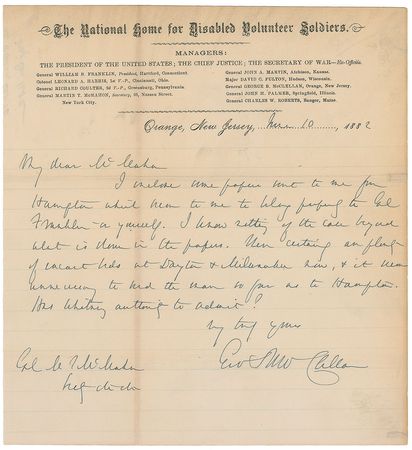 The National Home for Disabled Volunteer Soldiers.
MANAGERS:
THE PRESIDENT OF THE UNITED STATES; THE CHIEF JUSTICE; THE SECRETARY OF WAR—Ex-Officiis.
General WILLIAM B. FRANKLIN, President, Hartford, Connecticut.
Colonel LEONARD A. HARRIS, 1st V.-P., Cincinnati, Ohio.
General RICHARD COULTER, 2d V.-P., Greensburg, Pennsylvania.
General MARTIN T. McMAHON, Secretary, 93, Nassau Street,
New York City.
General JOHN A. MARTIN, Atchison, Kansas.
Major DAVID C. FULTON, Hudson, Wisconsin.
General GEORGE B. McCLELLAN, Orange, New Jersey.
General JOHN M. PALMER, Springfield, Illinois.
General CHARLES W. ROBERTS, Bangor, Maine.
Orange, New Jersey, 10, 1882
My dear McMahon
I enclose some papers sent to me from
Hampton which seem to me to belong properly to Gnl
Franklin or yourself. I know nothing of the case beyond
what is shown in the papers. There certainly are plenty
of vacant beds at Dayton & Milwaukee now, & it seems
unnecessary to send the man so far as to Hampton.
Has Whitney authority to admit?
Very truly yours
Geo B McClellan
Gnl M T McMahon